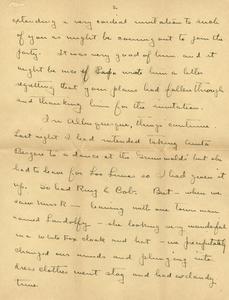 2.
extending a very cordial invitation to such
of you as might be coming out to join the
party. It was very good of him and it
might be nice if Papa wrote him a letter
regretting that your plans had fallen through
and thanking him for the invitation.
In Albuquerque, things continue.
Last night I had intended taking Anita
Bergere to a dance at the but she
had to leave for Los Lunas so I had given it
up. So had King & Bob. But – when we
saw Miss R – leaving with one town man
named – she looking very wonderful
in a White Fox cloak and hat – we precipitately
changed our minds and plunging into
dress clothes went stag and had a dandy
time.